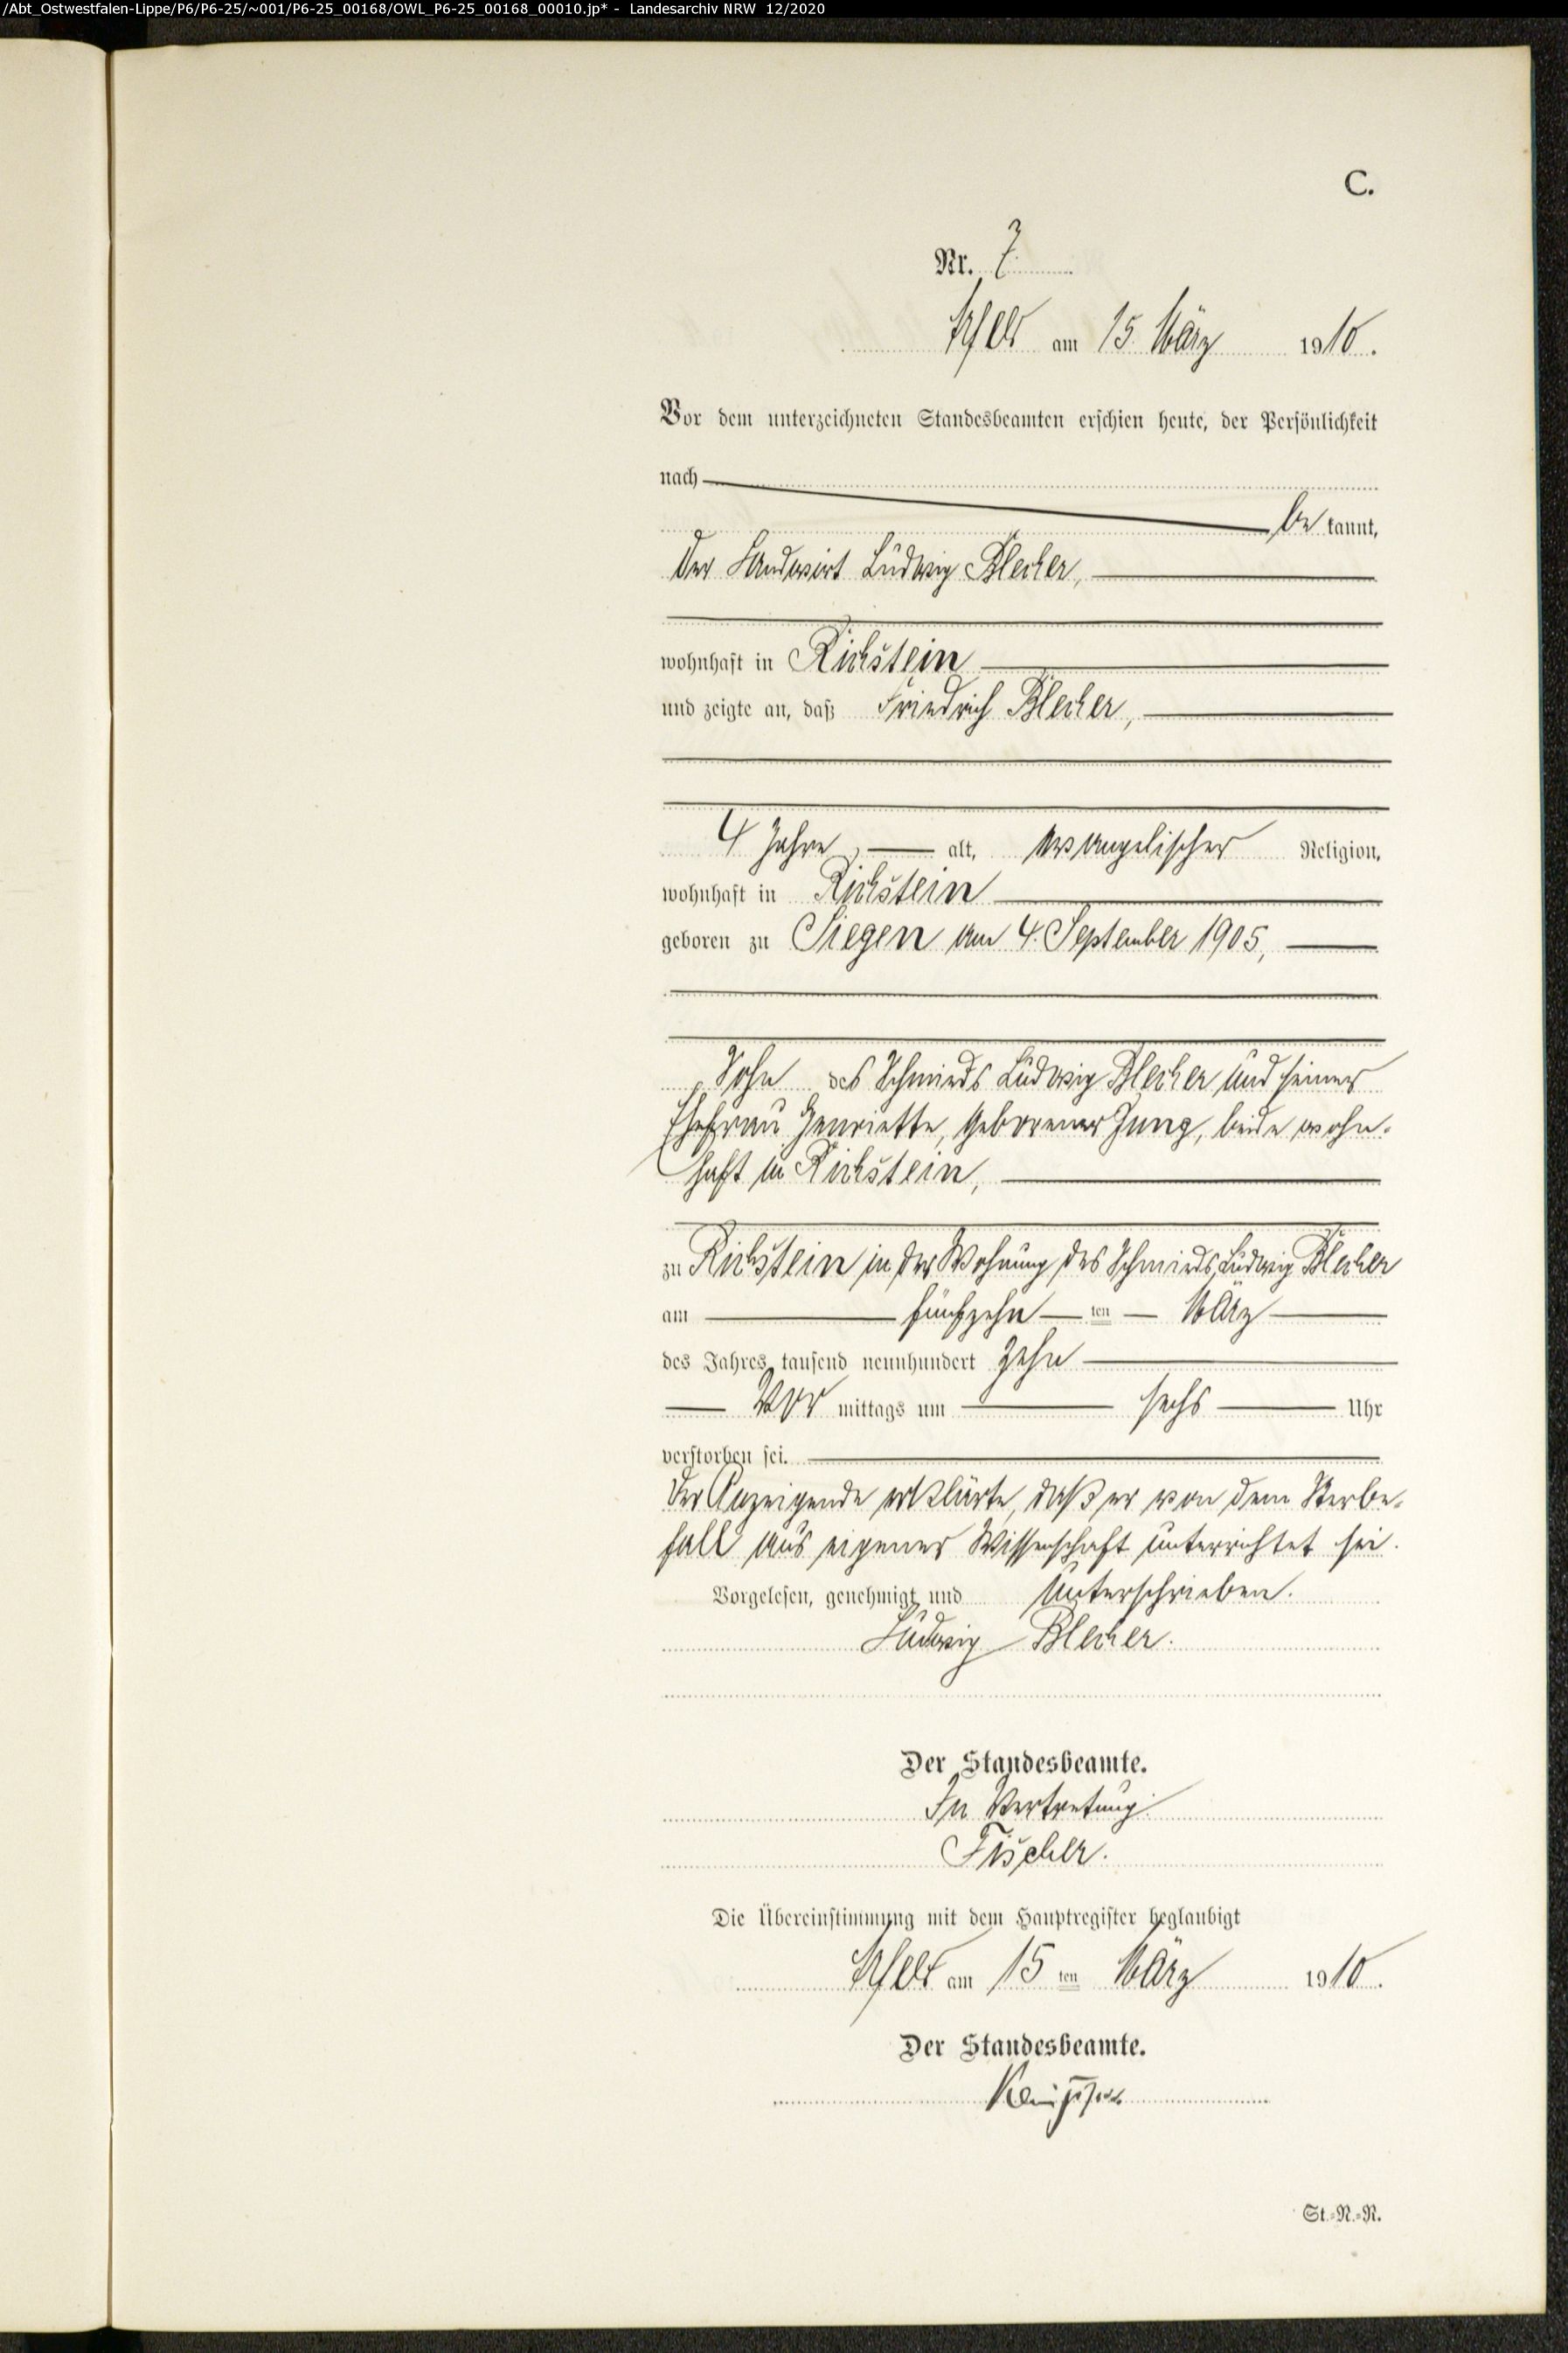 /Abt_Ostwestfalen-Lippe/P6/P6-25/~001/P6-25_00168/OWL_P6-25_00168_00010.jp* - Landesarchiv NRW 12/2020
C.
Nr. 7
Arfeld am 15. März 1910.
Vor dem unterzeichneten Standesbeamten erschien heute, der Persönlichkeit
nach
be kannt,
der Landwirt Ludwig Blecher,
wohnhaft in Richstein
und zeigte an, daß Friedrich Blecher,
4 Jahre, alt, evangelischer Religion,
wohnhaft in Richstein
geboren zu Siegen am 4. September 1905,
Sohn des Schmieds Ludwig Blecher und seiner
Ehefrau Henriette, geborener Jung, beide wohn-
haft in Richstein,
zu Richstein in der Wohnung des Schmieds Ludwig Blecher
am fünfzehn ten März
des Jahres tausend neunhundert zehn
Vor mittags um sechs Uhr
verstorben sei.
Der Anzeigende erklärte, daß er von dem Sterbe-
fall aus eigener Wissenschaft unterrichtet sei.
Vorgelesen, genehmigt und unterschrieben.
Ludwig Blecher.
Der Standesbeamte.
In Vertretung
Fischer.
Die Übereinstimmung mit dem Hauptregister beglaubigt
Arfeld am 15 ten März 1910.
Der Standesbeamte.
St.-N.-R.